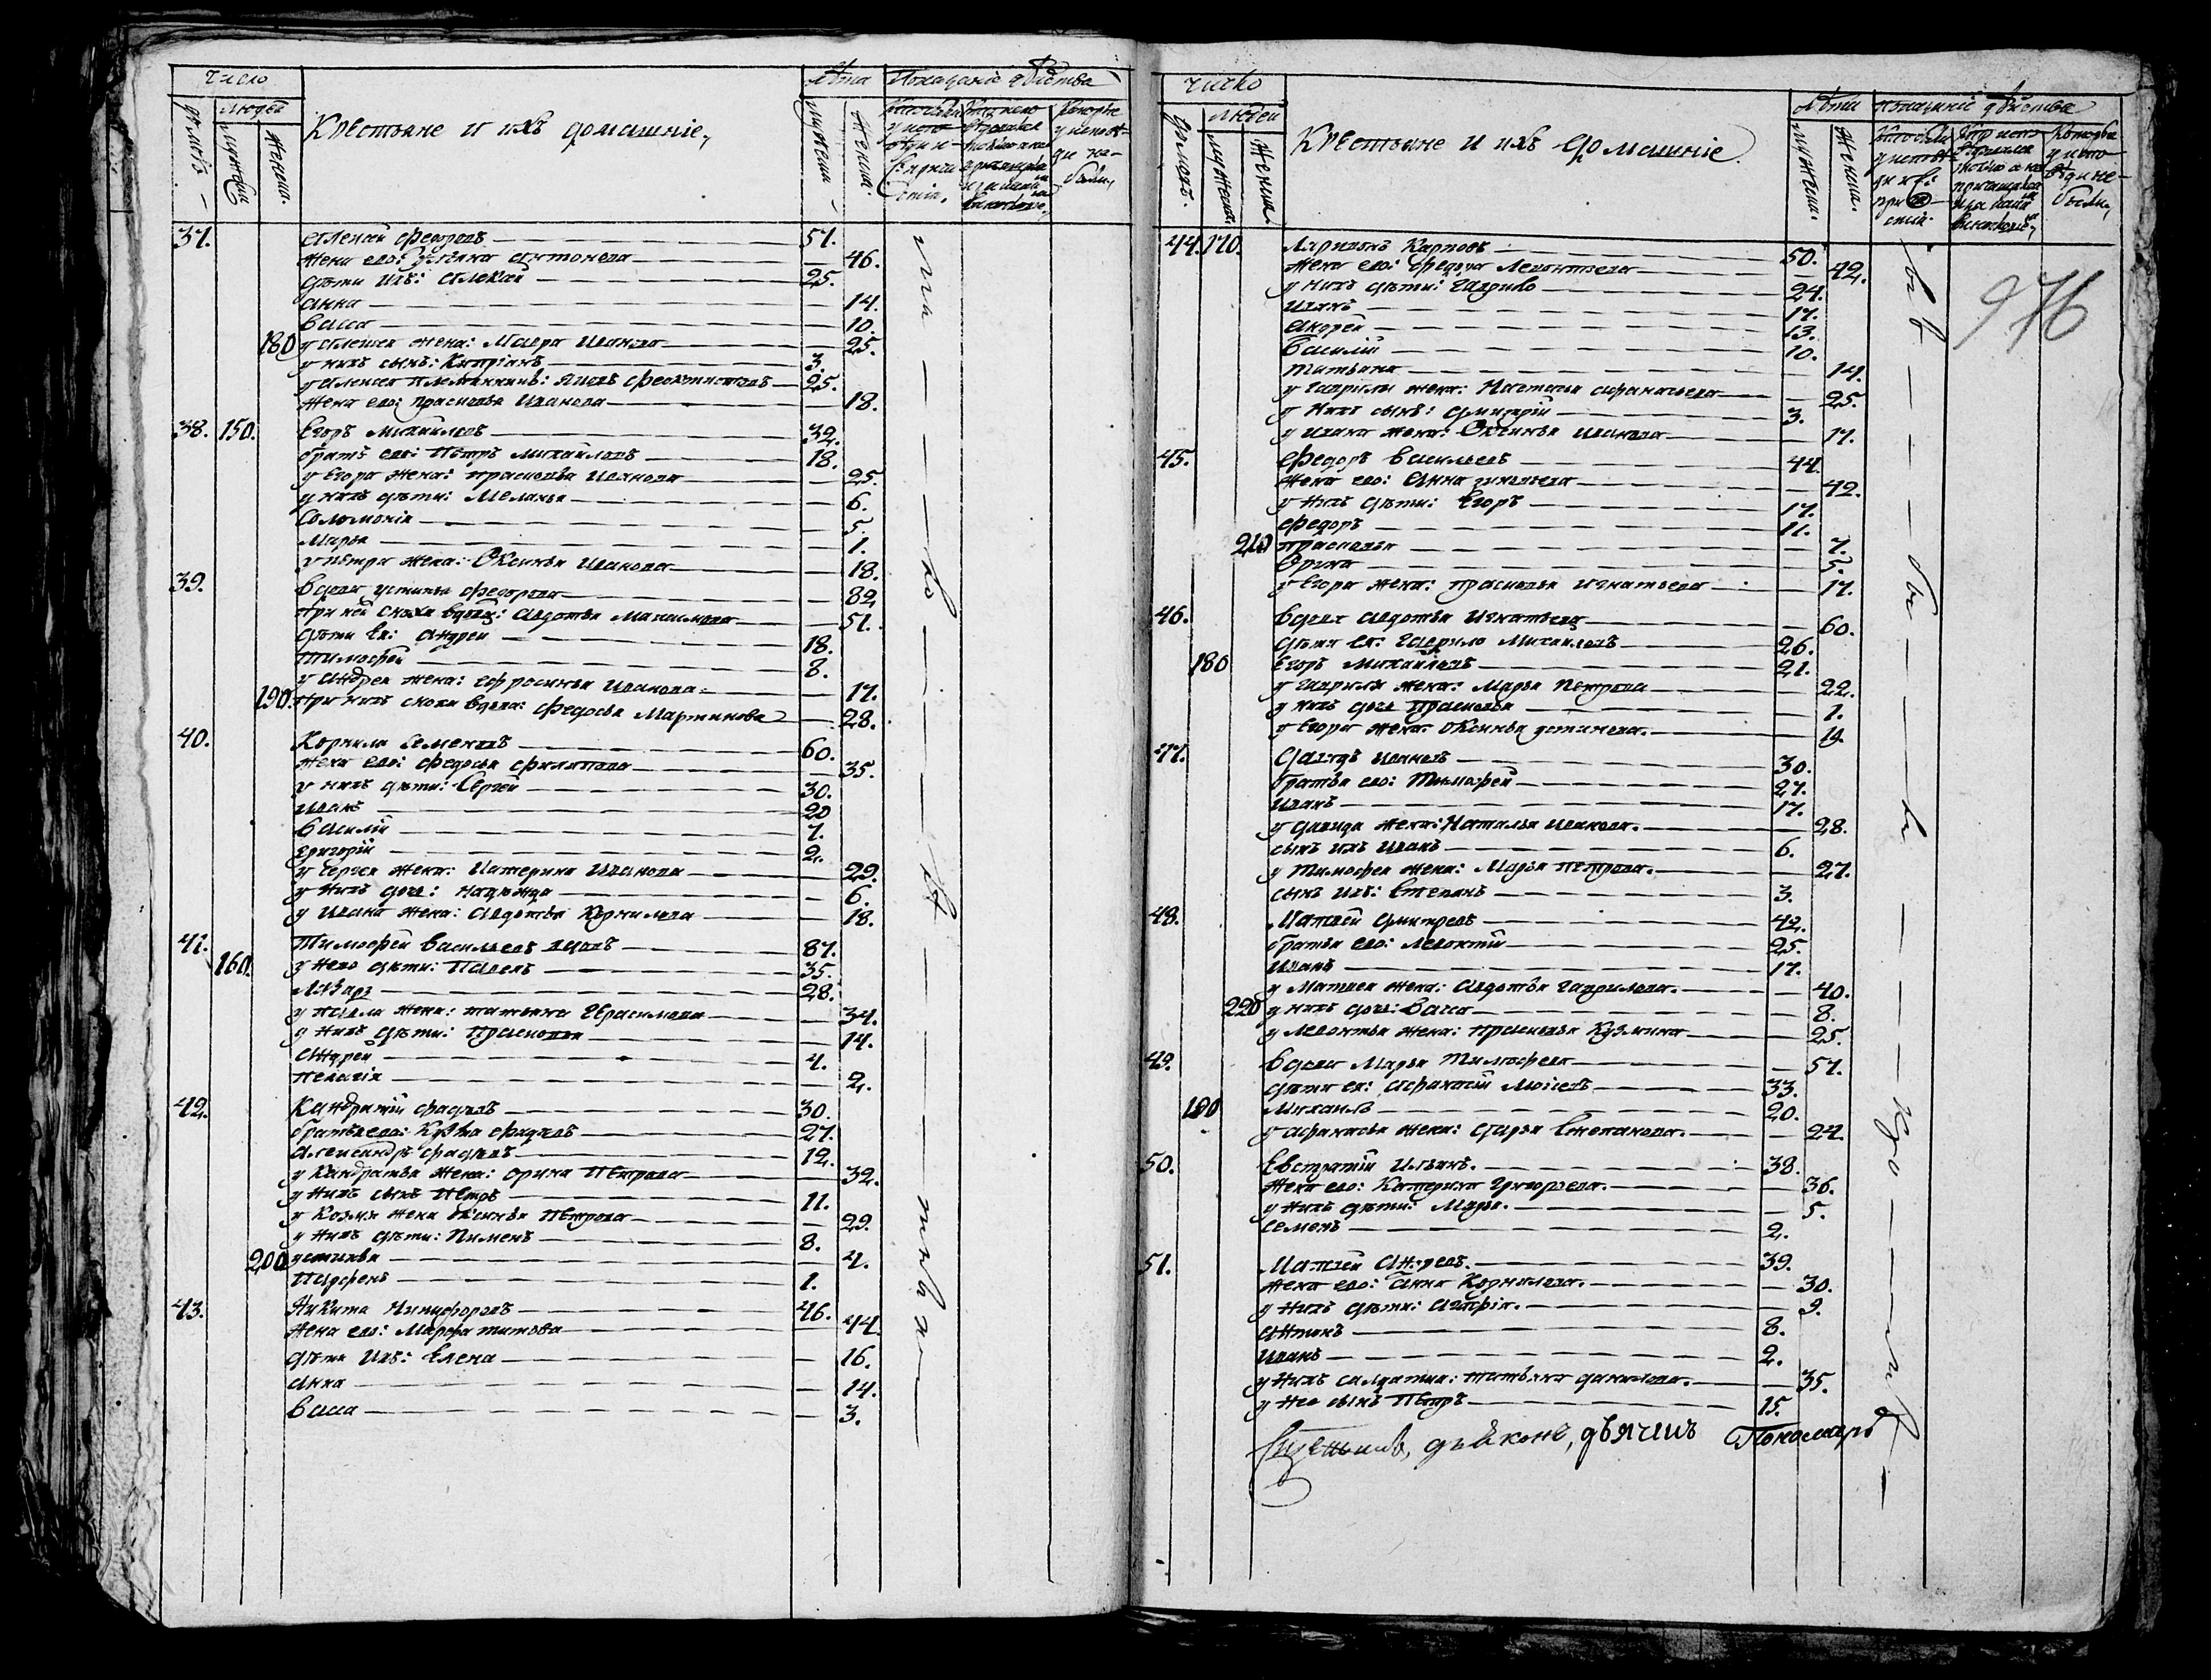 Число
Людей
Крестьяне и ихъ домашніе,
Лѣта
Показаніе дѣйства
домовъ
мужеска
женска.
мужеска
женска.
37. Алексѣй Федоровъ 57.
жена его: Ульяна Антонова 46.
дѣти ихъ: Алексѣй 25.
Анна 14.
Васса 10.
180 у Алексѣя жена: Мавра Иванова 25.
у нихъ сынъ: Кипріанъ 3.
у Алексѣя племянникъ: Яковъ Феоктистовъ 25.
жена его: Прасковья Иванова 18.
38. 150. Егоръ Михайловъ 32.
братъ его: Петръ Михайловъ 18.
у Егора жена: Прасковья Иванова 25.
у нихъ дѣти: Меланья 6.
Соломонія 5.
Марья 1.
у Петра жена: Оксинья Иванова 18.
39. Вдова Устинья Федорова 82
при ней сноха вдова: Авдотья Максимова 57.
дѣти ея: Андрей 18.
Тимофей 8.
у Андрея жена: Ефросинья Иванова 17.
190. при нихъ сноха вдова: Федосья Мартинова 28.
40. Корнила Семеновъ 60.
жена его: Федосья Филипова 35.
у нихъ дѣти: Сергей 30.
Иванъ 20
Василій 7.
Григорій 2.
у Сергея жена: Катерина Иванова 29.
у нихъ дочь: Надежда 6.
у Ивана жена: Авдотья Корнилова 18.
41. Тимофей Васильевъ вдовъ 87.
160. у него дѣти: Павелъ 35.
Лазарь 28.
у Павла жена: Татьяна Герасимова 34.
у нихъ дѣти: Прасковья 14.
Андрей 4.
Пелагія 2.
42. Кандратій Фадѣевъ 30.
братья его: Кузма Фадѣевъ 27.
Александръ Фадѣевъ 12.
у Кандратья жена: Орина Петрова 32.
у нихъ сынъ Петръ 11.
у Козмы жена Оксинья Петрова 29.
у нихъ дѣти: Пименъ 8.
200 Устинья 4.
Парфенъ 1.
43. Никита Никифоровъ 46.
жена его: Марфа Титова 44.
дѣти ихъ: Елена 16.
Анна 14.
Васса 3.
Число
Людей
Крестьяне и ихъ домашніе.
Лѣта
Показаніе дѣйства
домовъ.
мужеска
женска.
мужеска.
женска.
976
44. 170. Ларионъ Карповъ 50.
жена его: Федора Леонтьева 42.
у нихъ дѣти: Гаврило 24.
Иванъ 17.
Андрей 13.
Василій 10.
Татьяна 14.
у Гаврилы жена: Настасья Афанасьева 25.
у нихъ сынъ: Дмитрій 3.
у Ивана жена: Оксинья Иванова 17.
45. Федоръ Васильевъ 44.
жена его: Анна 42.
у нихъ дѣти: Егоръ 17.
Федоръ 11.
210 Прасковья 7.
Орина 5.
у Егора жена: Прасковья Игнатьева 17.
46. Вдова Авдотья Игнатьева 60.
дѣти ея: Гаврило Михайловъ 26.
180 Егоръ Михайловъ 21.
у Гаврилы жена: Марья Петрова 22.
у нихъ дочь Прасковья 1.
у Егора жена: Оксинья Устинова. 19.
47. Давыдъ Ивановъ 30.
братья его: Тимофей 27.
Иванъ 17.
у Давида жена: Наталья Иванова. 28.
сынъ ихъ Иванъ 6.
у Тимофея жена: Марья Петрова. 27.
сынъ ихъ: Степанъ 3.
48. Матвей Дмитревъ 42.
братья его: Леонтій 25.
Иванъ 17.
у Матвея жена: Авдотья Гаврилова. 40.
220 у нихъ дочь: Васса 8.
у Леонтья жена: Прасковья Кузмина 25.
49. Вдова Марья Тимофеева 57.
дѣти ея: Афанасій Моисеевъ 33.
190 Михаилъ 20.
у Афанасья жена: Дарья Степанова. 24.
50. Евстратій Ильинъ. 38.
жена его: Катерина Григорьева. 36.
у нихъ дѣти: Марья. 5.
Семенъ 2.
51. Матвей Андреевъ. 39.
жена его: Анна Корнилова. 30.
у нихъ дѣти: 9.
Антонъ 8.
Иванъ 2.
у нихъ салдатка: Татьяна Данилова. 35.
у нее сынъ Петръ 15.
дьяконъ, дьячикъ Пономарь